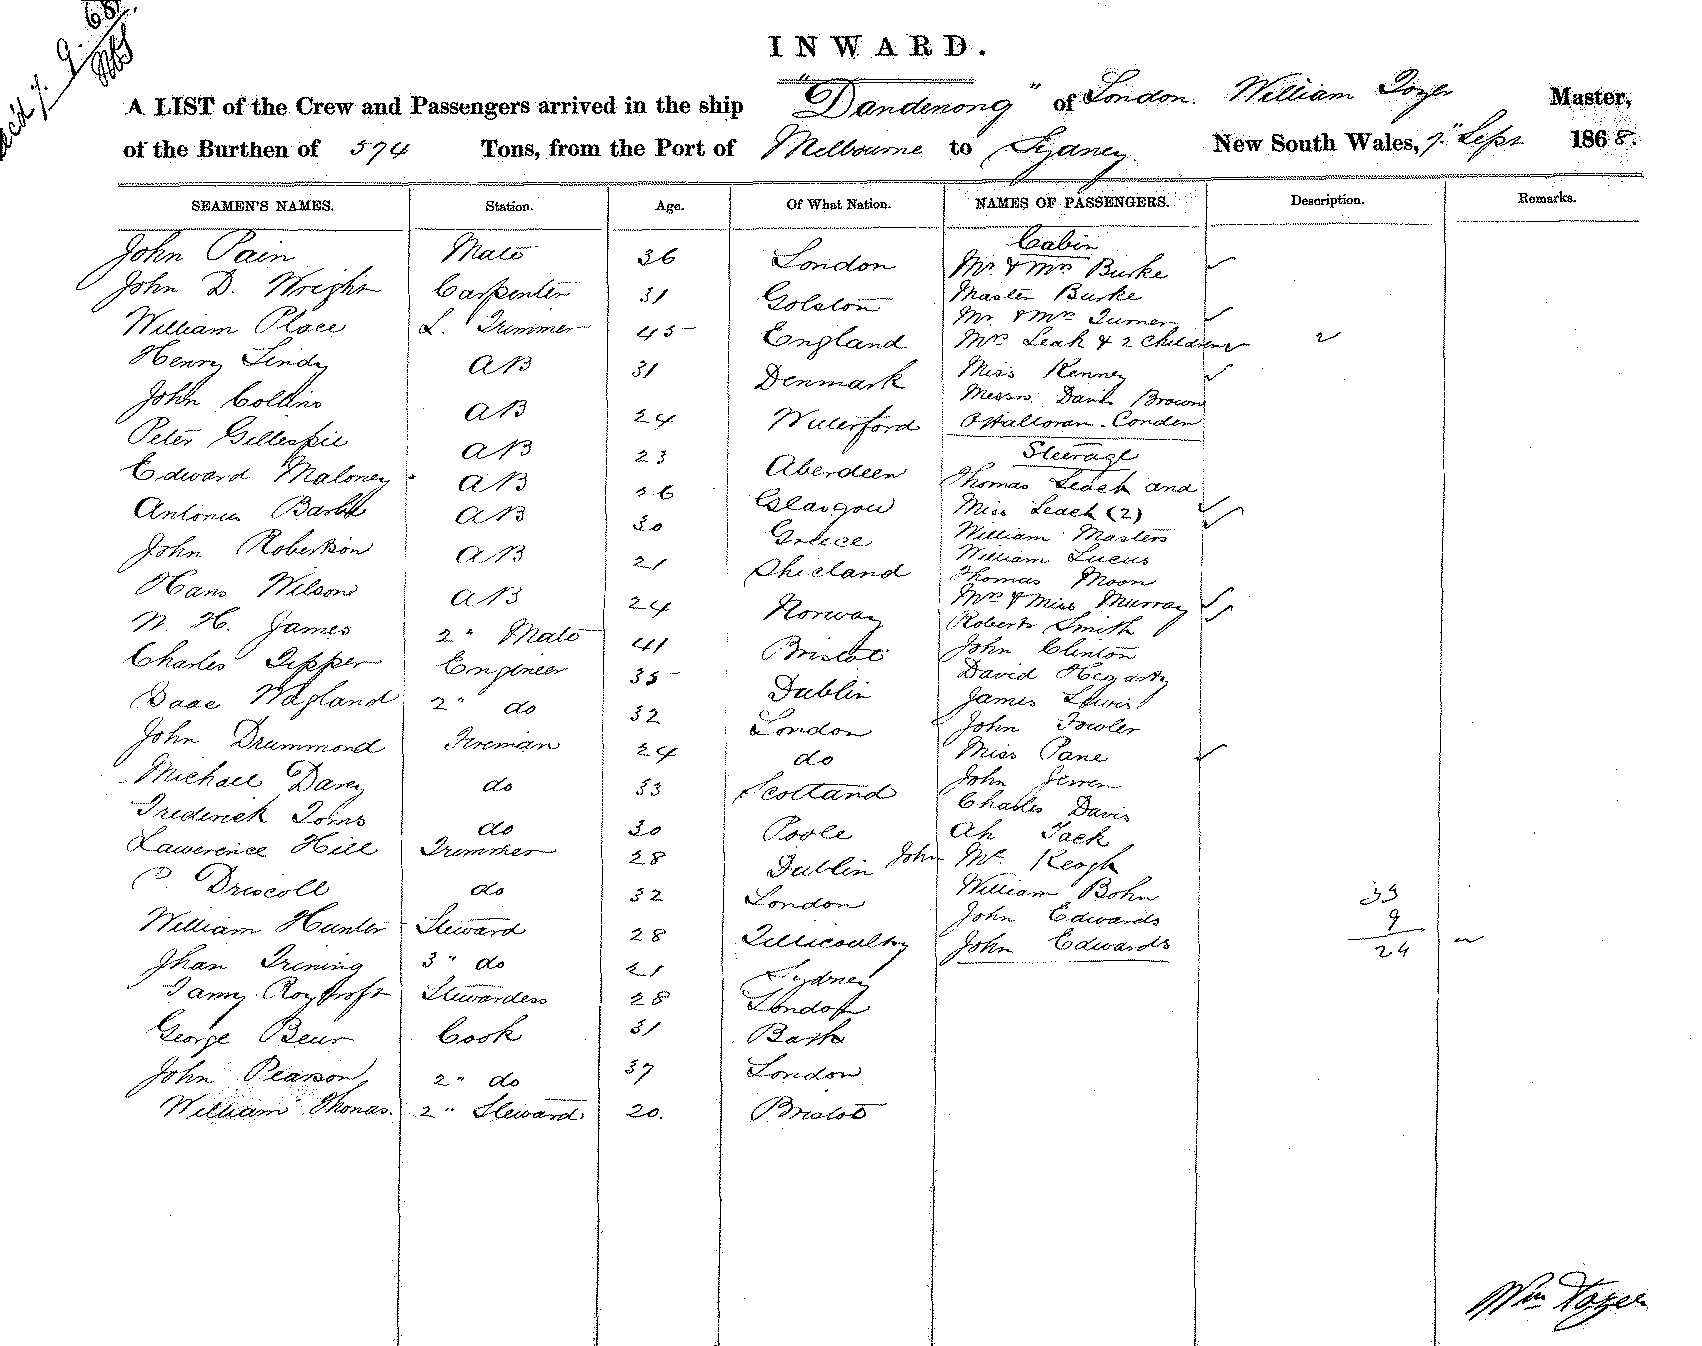 INWARD.
A LIST of the Crew and Passengers arrived in the ship "Dandenong" of London. William Tozer Master,
of the Burthen of 574 Tons, from the Port of Melbourne to Sydney New South Wales, 7" Sepr 1868.
SEAMEN'S NAMES. Station. Age. Of What Nation. NAMES OF PASSENGERS. Description. Remarks.
Cabin
John Pain Mate 36 London Mr & Mrs Burke
John D. Wright Carpenter 31 Master Burke
William Place L. Trimmer 45 England Mr. & Mrs Turner
Mrs Leah & 2 Children
Henry Lindy AB 31 Denmark Miss Kenney
John Collins AB 24 Waterford Messrs. Davis Brown
O'Halloran. Conden
Peter Gillespie AB 23 Aberdeen Steerage
Edward Maloney AB 36 Glasgow Thomas Leach and
Antonio AB 30 Greece Miss Leach (2)
William Masters
John Robertson AB 21 William Lucus
Thomas Moon
Hans Wilson AB 24 Norway Mrs & Miss Murray
N. H. James 2" Mate 41 Bristol Robert Smith
John Clinton
Charles Tipper Engineer 35 Dublin David Hegarty
Isaac Wagland 2" do 32 London James Lewis
John Fowler
John Drummond Fireman 24 do Miss Pane
Michael Darcy do 33 Scotland John
Charles Davis
Frederick Toms do 30 Poole Ah Jack
Lawerence Hill Trimmer 28 Dublin John Mc Keogh
Driscoll do 32 London William Bohn 33
William Hunter Steward 28 Tillicoultry John Edwards 9
John Edwards 24
Jhan Trining 3" do 21 Sydney
Fanny Roycroft Stewardess 28 London
George Beur Cook 31 Bath
John Pearson 2" do 37 London
William Thomas. 2" Steward 20. Bristol
Wm Tozer